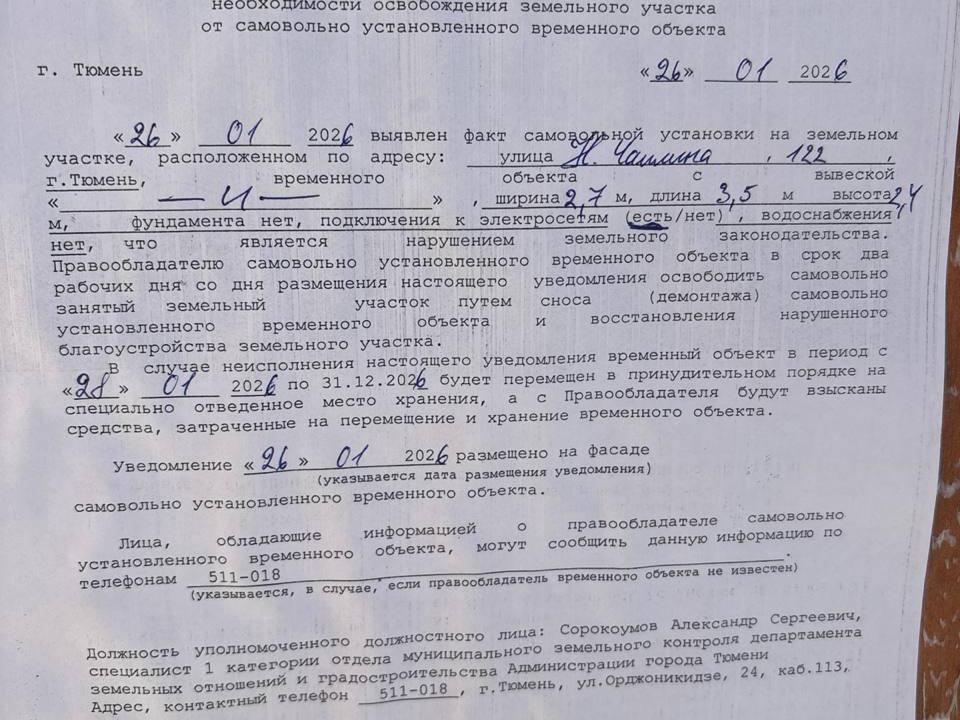 необходимости освобождения земельного участка
от самовольно установленного временного объекта
г. Тюмень «26» 01 2026
«26» 01 2026 выявлен факт самовольной установки на земельном
участке, расположенном по адресу: улица Н. Чаплина, 122,
г.Тюмень, временного объекта с вывеской
«— и —», ширина 2,7 м, длина 3,5 м высота 2,4
м, фундамента нет, подключения к электросетям (есть/нет), водоснабжения
нет, что является нарушением земельного законодательства.
Правообладателю самовольно установленного временного объекта в срок два
рабочих дня со дня размещения настоящего уведомления освободить самовольно
занятый земельный участок путем сноса (демонтажа) самовольно
установленного временного объекта и восстановления нарушенного
благоустройства земельного участка.
В случае неисполнения настоящего уведомления временный объект в период с
«28» 01 2026 по 31.12.2026 будет перемещен в принудительном порядке на
специально отведенное место хранения, а с Правообладателя будут взысканы
средства, затраченные на перемещение и хранение временного объекта.
Уведомление «26» 01 2026 размещено на фасаде
(указывается дата размещения уведомления)
самовольно установленного временного объекта.
Лица, обладающие информацией о правообладателе самовольно
установленного временного объекта, могут сообщить данную информацию по
телефонам 511-018.
(указывается, в случае, если правообладатель временного объекта не известен)
Должность уполномоченного должностного лица: Сорокоумов Александр Сергеевич,
специалист 1 категории отдела муниципального земельного контроля департамента
земельных отношений и градостроительства Администрации города Тюмени
Адрес, контактный телефон 511-018, г.Тюмень, ул.Орджоникидзе, 24, каб.113,